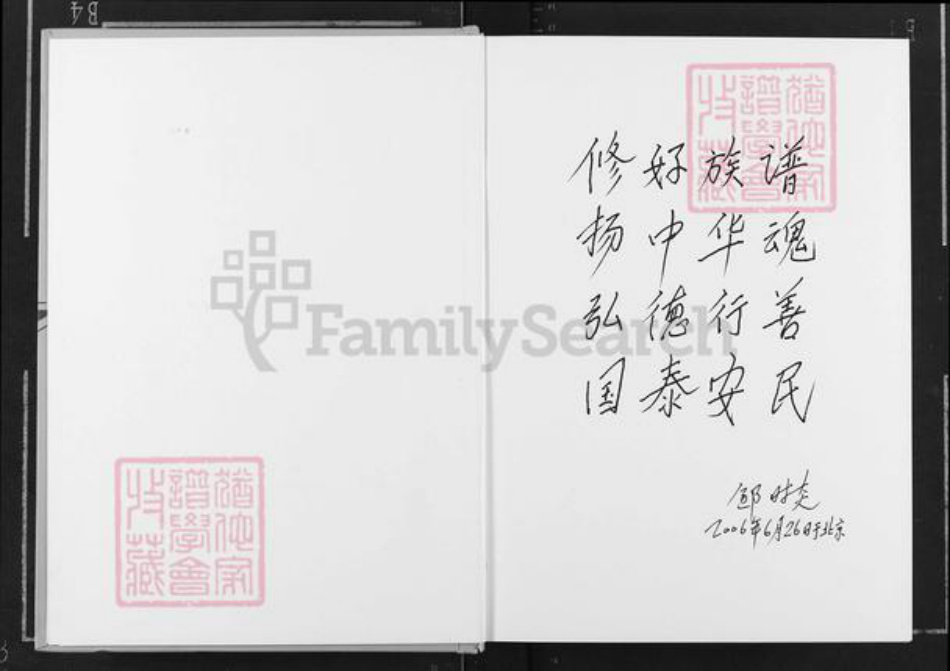 B4
修好族谱
扬中华魂
弘德行善
国泰安民
邹时炎
2006年6月26日于北京
FamilySearch
猶他家
譜學會
收藏
猶他家
譜學會
收藏